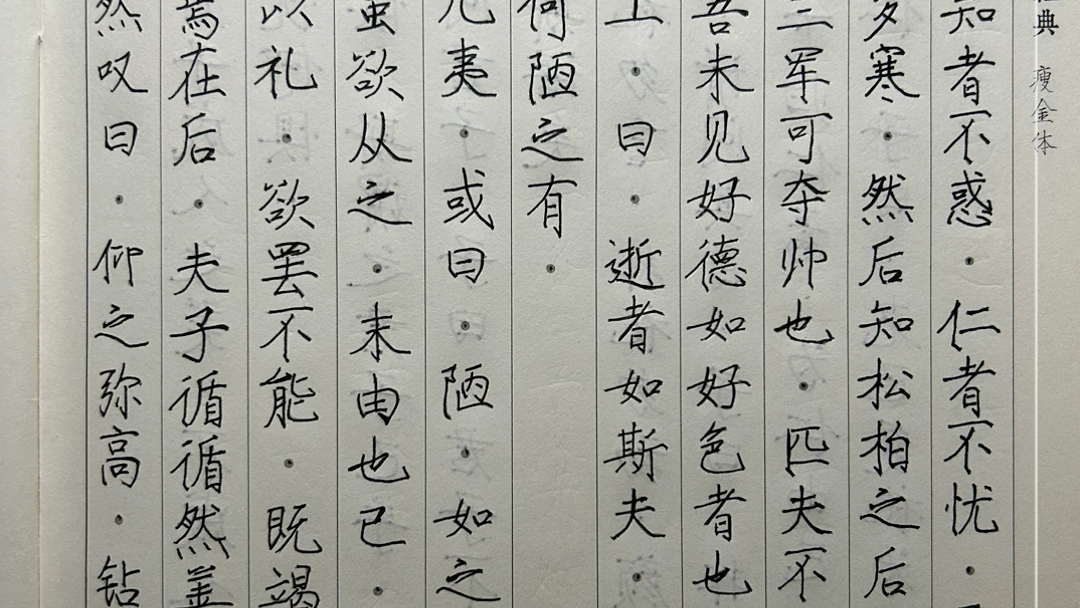 典 瘦金体
知者不惑·仁者不忧·
寒·然后知松柏之后
三军可夺帅也·匹夫不
吾未见好德如好色者也
上·曰·逝者如斯夫·
何陋之有·
九夷·或曰·陋·如之
虽欲从之·末由也已·
以礼·欲罢不能·既竭
焉在后·夫子循循然善
然叹曰·仰之弥高·钻